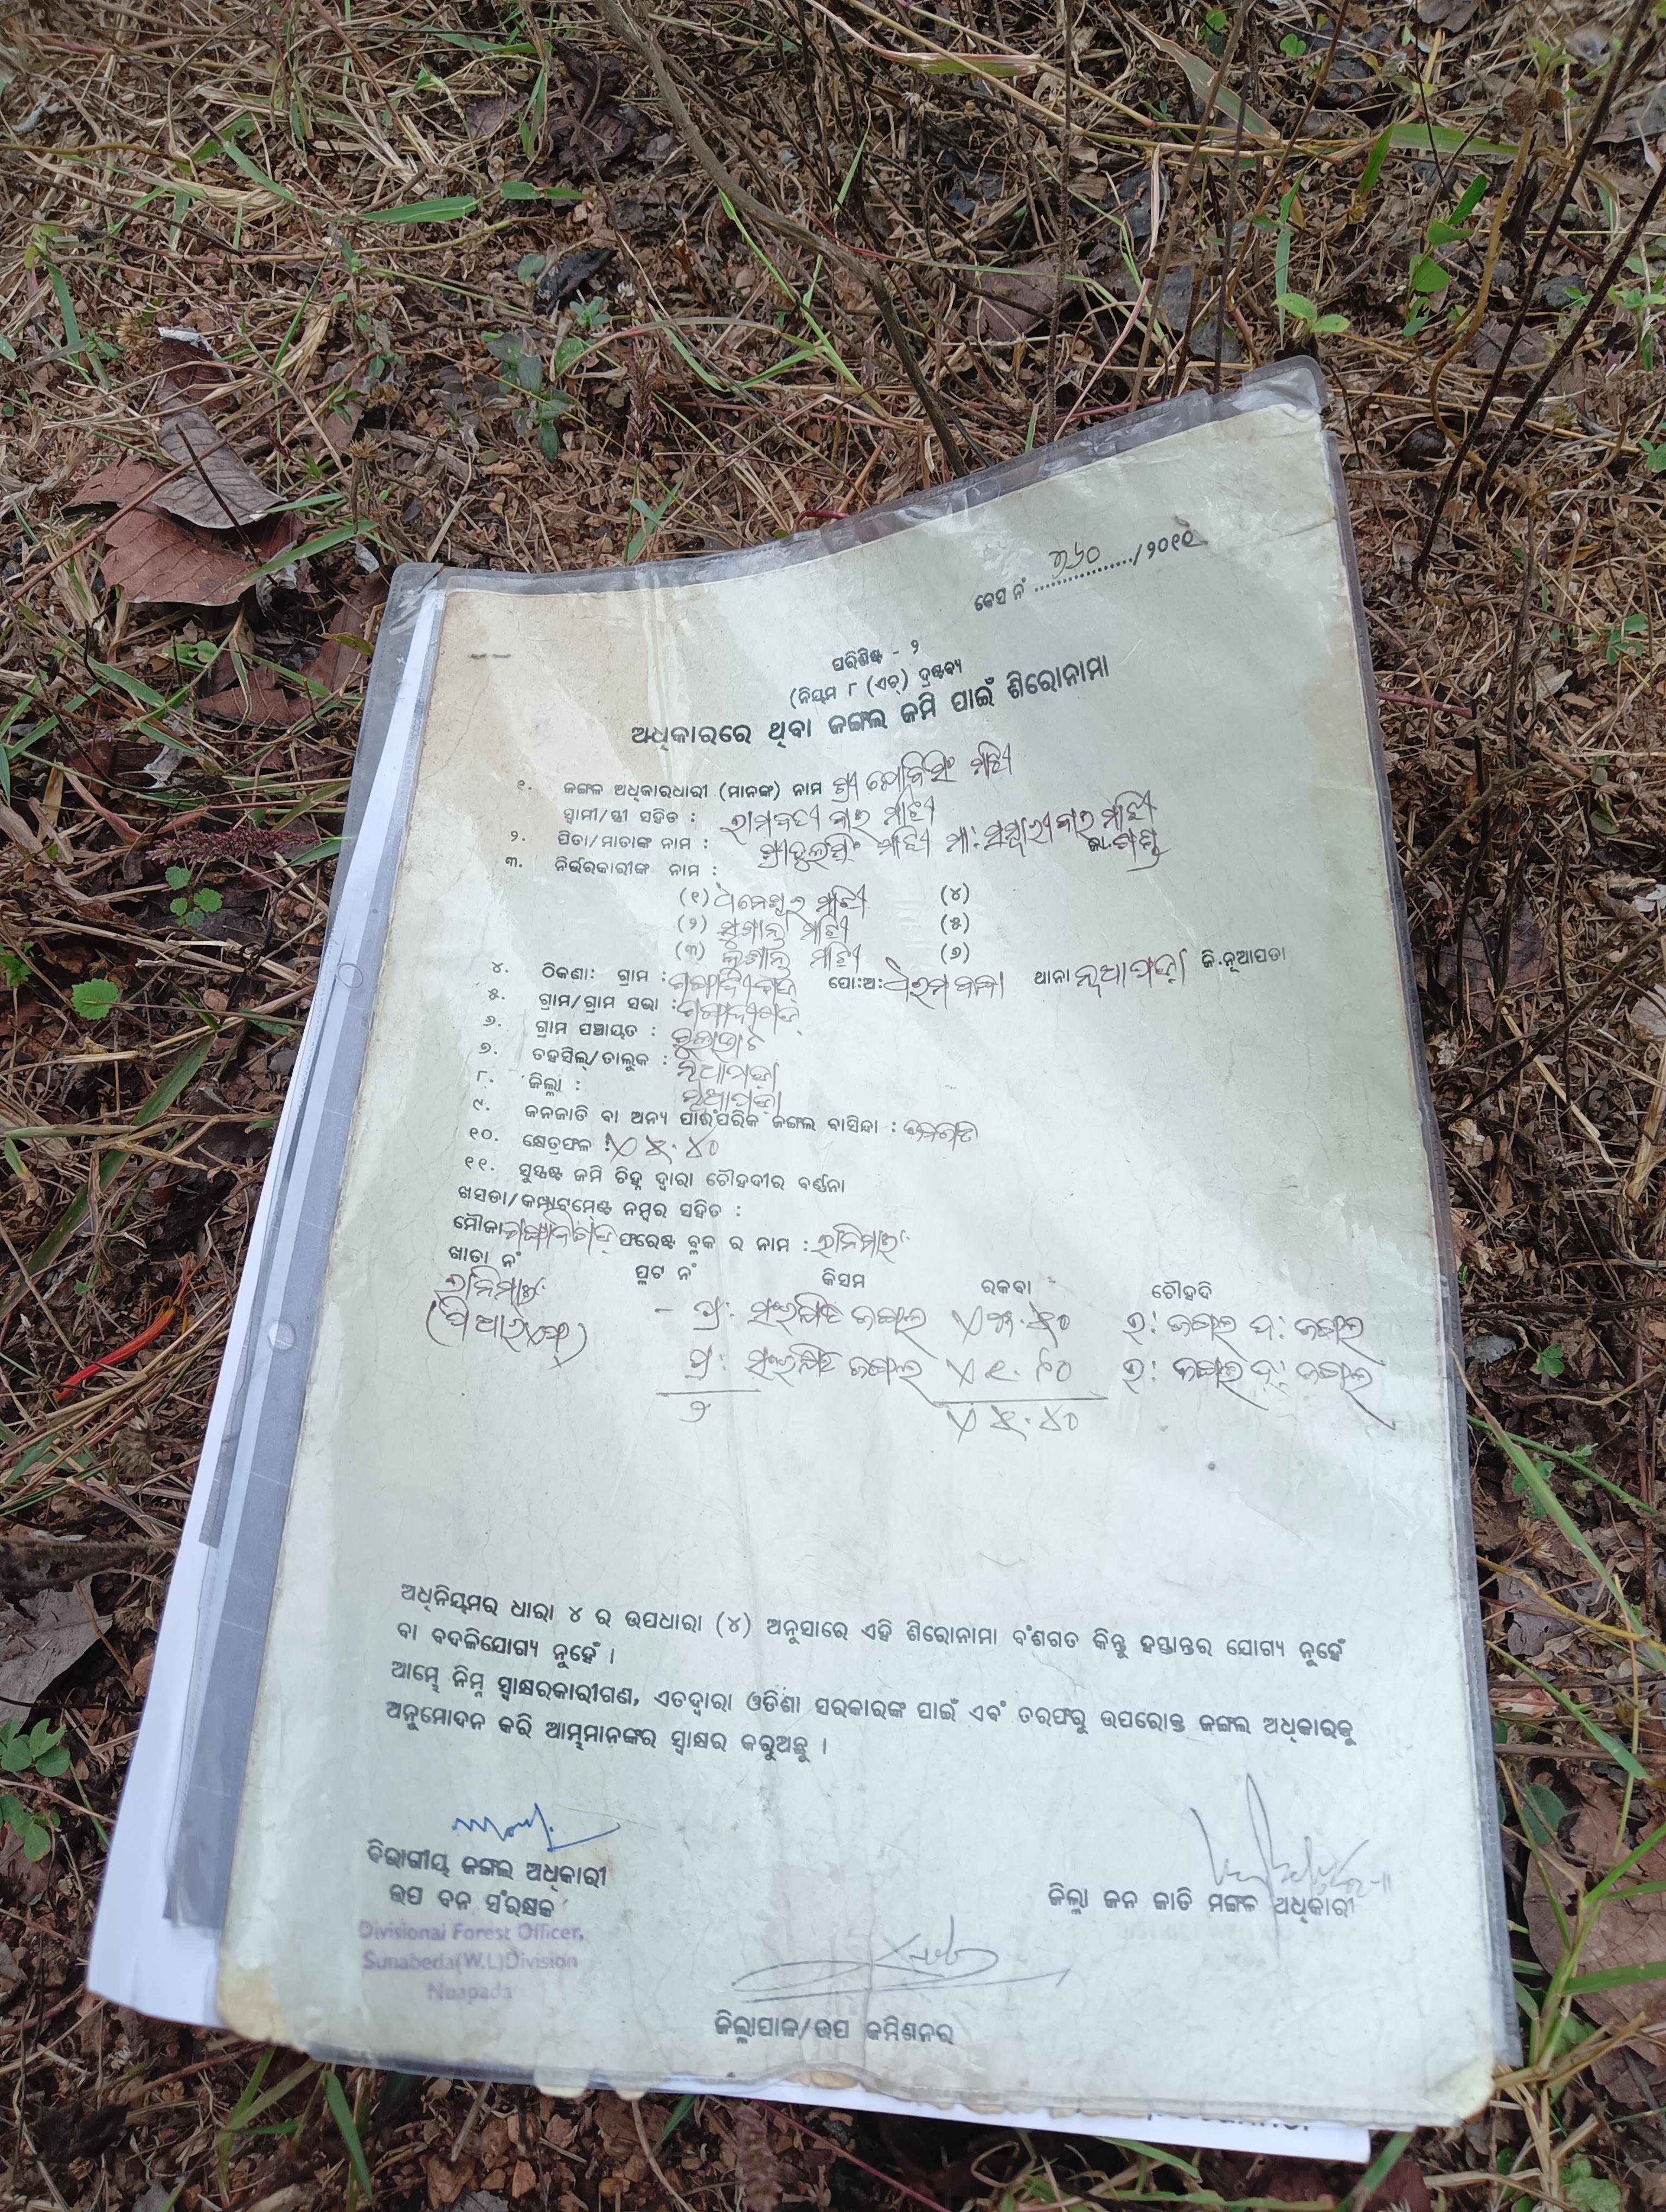 କେସ ନଂ ................/୨୦୧୧
ପରିଶିଷ୍ଟ - ୨
(ନିୟମ ୮ (ଏଚ୍) ଦ୍ରଷ୍ଟବ୍ୟ
ଅଧିକାରରେ ଥିବା ଜଙ୍ଗଲ ଜମି ପାଇଁ ଶିରୋନାମା
୧. ଜଙ୍ଗଳ ଅଧିକାରଧାରୀ (ମାନଙ୍କ) ନାମ ଶ୍ରୀ ମାଝୀ
ସ୍ୱାମୀ/ସ୍ତ୍ରୀ ସହିତ : ରାମବତୀ ବାଇ ମାଝୀ
୨. ପିତା/ମାତାଙ୍କ ନାମ : ମାଝୀ ମା: ମାଝୀ
୩. ନିର୍ଭରକାରୀଙ୍କ ନାମ : ଜା.ଗଣ୍ଡ
(୧) ମାଝୀ (୪)
(୨) ସୁଶାନ୍ତ ମାଝୀ (୫)
(୩) ମାଝୀ (୬)
୪. ଠିକଣା: ଗ୍ରାମ : ପୋ:ଅ: ଧରମବନ୍ଧା ଥାନା ନୂଆପଡ଼ା ଜି.ନୂଆପଡା
୫. ଗ୍ରାମ/ଗ୍ରାମ ସଭା :
୬. ଗ୍ରାମ ପଞ୍ଚାୟତ :
୭. ତହସିଲ୍/ତାଲୁକ : ନୂଆପଡ଼ା
୮. ଜିଲ୍ଲା : ନୂଆପଡ଼ା
୯. ଜନଜାତି ବା ଅନ୍ୟ ପାରଂପରିକ ଜଙ୍ଗଲ ବାସିନ୍ଦା : ଜନଜାତି
୧୦. କ୍ଷେତ୍ରଫଳ : ୪୦
୧୧. ସୁସ୍ପଷ୍ଟ ଜମି ଚିହ୍ନ ଦ୍ୱାରା ଚୌହଦୀର ବର୍ଣ୍ଣନା
ଖସଡା/କମ୍ପାଟ୍ମେଣ୍ଟ ନମ୍ବର ସହିତ :
ମୌଜା ଫରେଷ୍ଟ ବ୍ଲକ ର ନାମ : ରାନିମାଇଁ
ଖାତା ନଂ ପ୍ଲଟ ନଂ କିସମ ରକବା ଚୌହଦି
ରାନିମାଇଁ - ପ୍ର: ସଂରକ୍ଷିତ ଜଙ୍ଗଲ ଉ: ଜଙ୍ଗଲ ଦ: ଜଙ୍ଗଲ
(ପିଆରଏଫ) ପ୍ର: ସଂରକ୍ଷିତ ଜଙ୍ଗଲ ଉ: ଜଙ୍ଗଲ ଦ: ଜଙ୍ଗଲ
୨ ୪୦
ଅଧିନିୟମର ଧାରା ୪ ର ଉପଧାରା (୪) ଅନୁସାରେ ଏହି ଶିରୋନାମା ବଂଶଗତ କିନ୍ତୁ ହସ୍ତାନ୍ତର ଯୋଗ୍ୟ ନୁହେଁ
ବା ବଦଳିଯୋଗ୍ୟ ନୁହେଁ ।
ଆମ୍ଭେ ନିମ୍ନ ସ୍ୱାକ୍ଷରକାରୀଗଣ, ଏତଦ୍ୱାରା ଓଡିଶା ସରକାରଙ୍କ ପାଇଁ ଏବଂ ତରଫରୁ ଉପରୋକ୍ତ ଜଙ୍ଗଲ ଅଧିକାରକୁ
ଅନୁମୋଦନ କରି ଆମ୍ଭମାନଙ୍କର ସ୍ୱାକ୍ଷର କରୁଅଛୁ ।
ବିଭାଗୀୟ ଜଙ୍ଗଲ ଅଧିକାରୀ
ଉପ ବନ ସଂରକ୍ଷକ
Divisional Forest Officer,
Sunabeda(W.L)Division
Nuapada
ଜିଲ୍ଲା ଜନ ଜାତି ମଙ୍ଗଳ ଅଧିକାରୀ
ଜିଲ୍ଲାପାଳ/ଉପ କମିଶନର